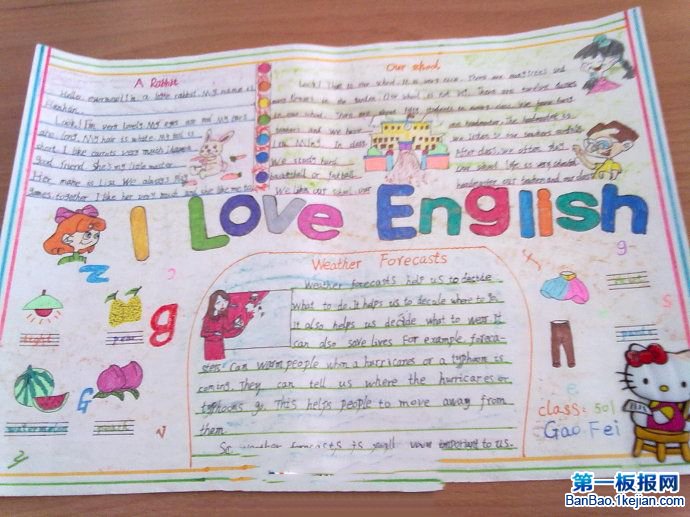 A Rabbit
Hello everyone! I'm a little rabbit. My name is
Look! I'm very lovely. My eyes are red. My ears
are long. My hair is white. My tail is
short. I like carrots very much. I have a
good friend. She's my little
Her name is Lisa. We always
games together. I like her very much and she like me too.
Our school
Look! This is our school. It is very nice. There are many trees and
flowers in the garden. Our school is There are twelve classes
in our school. There are about students in every class. We have
teachers and we have
Li Ming. In class, we listen to our teachers carefully.
We study hard. After class, we often play
basketball or football. Our school life is very
We like our school, our teachers and our classmates
I Love English
Weather Forecasts
Weather forecasts help us to decide
what to do. It helps us to decide where to
It also helps us decide what to wear. It
can also save lives. For example, foreca-
stes! Can warm people when a hurricanes or a typhoon is
coming. They can tell us where the hurricanes or
typhoons go. This helps people to move away from
them.
So weather forecasts is very important to us.
light
pear
watermelon
peach
g
G
N
y
z
g
e
class: 501
Gao Fei
第一板报网
BanBao.1kejian.com